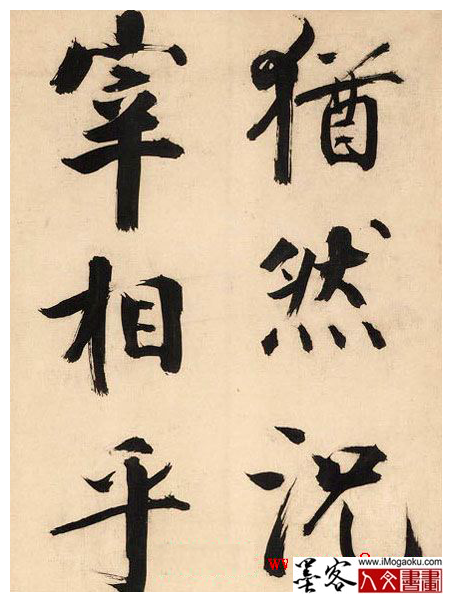 猶然况
宰相乎
www.iMogaoku.com
墨客人文書畫